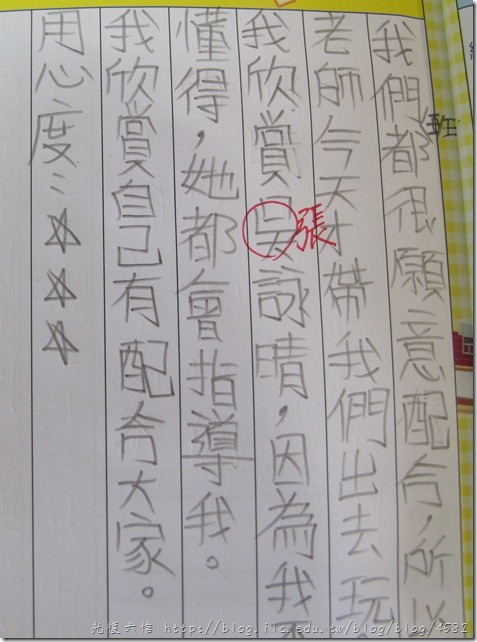 我們都很願意配合，所以
班
老師今天才帶我們出去玩
我欣賞吳詠晴，因為我
張
懂得，她都會指導我。
我欣賞自己有配合大家。
用心度：☆☆☆
http://blog.ilc.edu.tw/blog/blog/4582